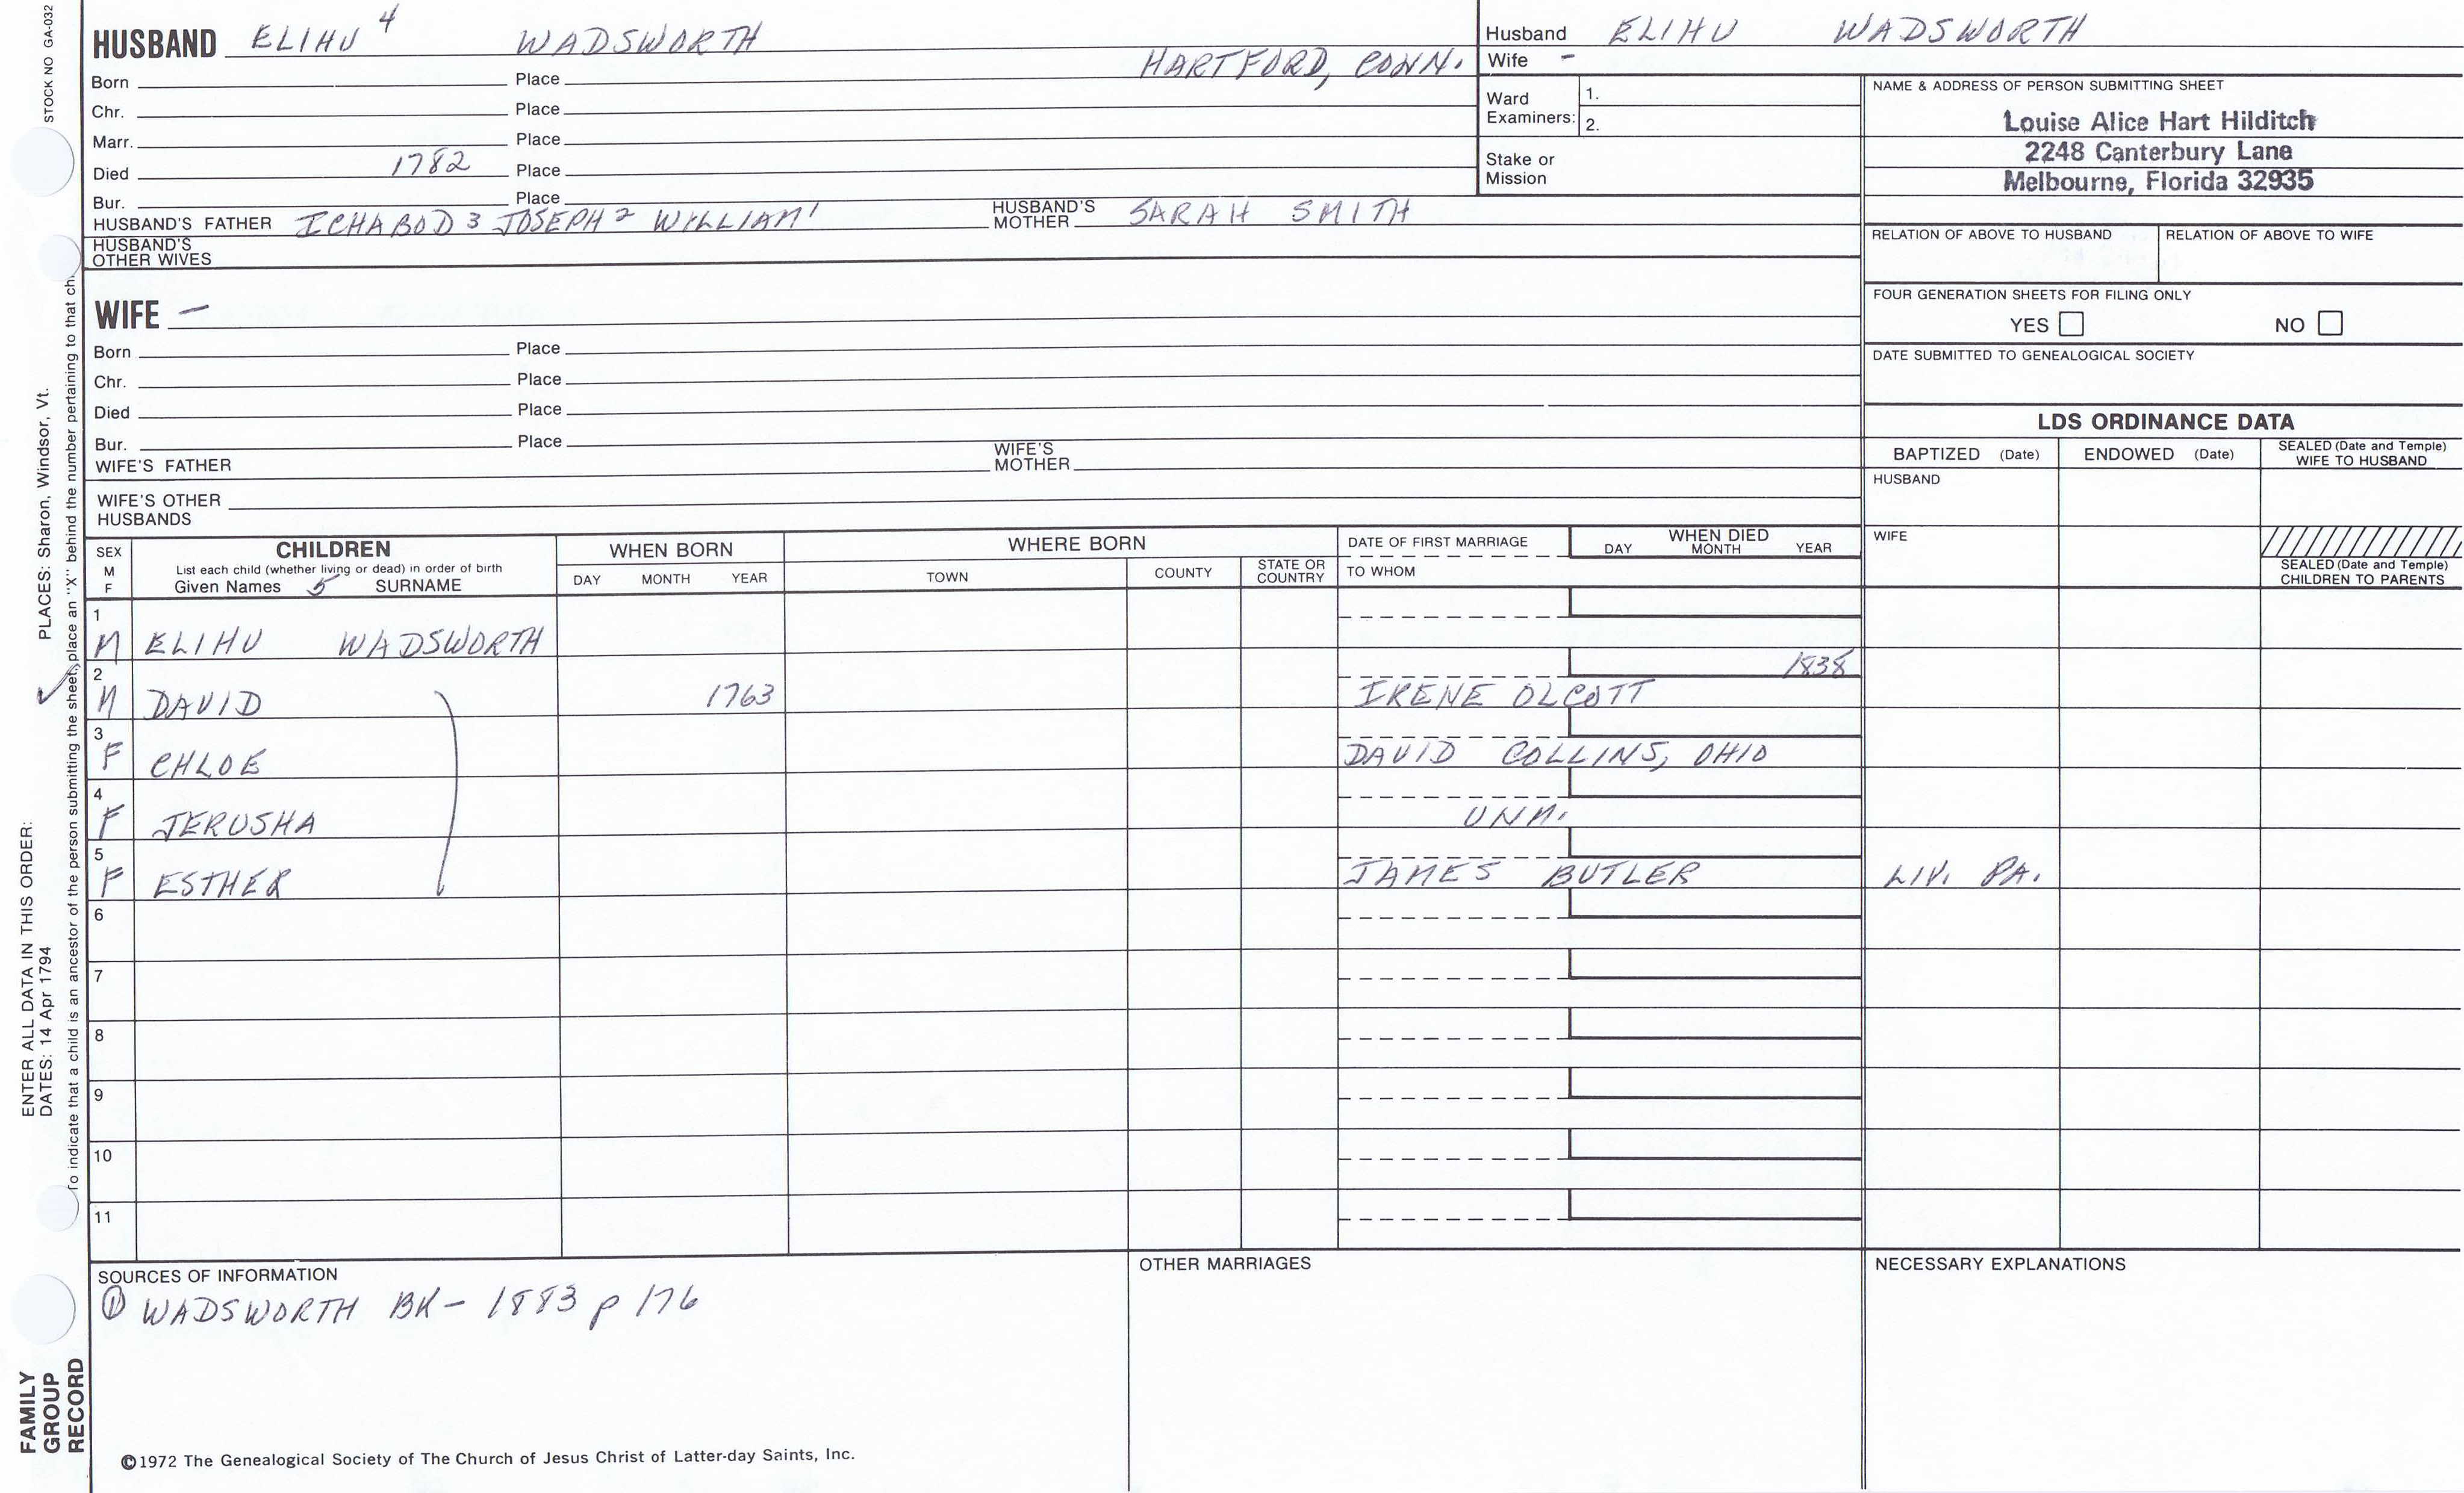 STOCK NO GA-032
HUSBAND ELIHU 4 WADSWORTH
HARTFORD, CONN.
Born Place
Chr. Place
Marr. Place
Died 1782 Place
Bur. Place
HUSBAND'S FATHER ICHABOD 3 JOSEPH 2 WILLIAM 1 HUSBAND'S MOTHER SARAH SMITH
HUSBAND'S OTHER WIVES
WIFE -
Born Place
Chr. Place
Died Place
Bur. Place
WIFE'S FATHER WIFE'S MOTHER
WIFE'S OTHER HUSBANDS
Husband ELIHU WADSWORTH
Wife -
Ward Examiners: 1.
2.
Stake or Mission
NAME & ADDRESS OF PERSON SUBMITTING SHEET
Louise Alice Hart Hilditch
2248 Canterbury Lane
Melbourne, Florida 32935
RELATION OF ABOVE TO HUSBAND RELATION OF ABOVE TO WIFE
FOUR GENERATION SHEETS FOR FILING ONLY
YES NO
DATE SUBMITTED TO GENEALOGICAL SOCIETY
LDS ORDINANCE DATA
BAPTIZED (Date) ENDOWED (Date) SEALED (Date and Temple) WIFE TO HUSBAND
HUSBAND
WIFE
SEALED (Date and Temple) CHILDREN TO PARENTS
SEX M F
CHILDREN
List each child (whether living or dead) in order of birth
Given Names 5 SURNAME
WHEN BORN
DAY MONTH YEAR
WHERE BORN
TOWN COUNTY STATE OR COUNTRY
DATE OF FIRST MARRIAGE
TO WHOM
WHEN DIED
DAY MONTH YEAR
1
M ELIHU WADSWORTH
2 1838
M DAVID 1763 IRENE OLCOTT
3
F CHLOE DAVID COLLINS, OHIO
4
F JERUSHA UNM.
5
F ESTHER JAMES BUTLER LIV. PA.
6
7
8
9
10
11
SOURCES OF INFORMATION
① WADSWORTH BK - 1883 p 176
OTHER MARRIAGES
NECESSARY EXPLANATIONS
©1972 The Genealogical Society of The Church of Jesus Christ of Latter-day Saints, Inc.
FAMILY
GROUP
RECORD
ENTER ALL DATA IN THIS ORDER:
DATES: 14 Apr 1794 PLACES: Sharon, Windsor, Vt.
To indicate that a child is an ancestor of the person submitting the sheet, place an "X" behind the number pertaining to that